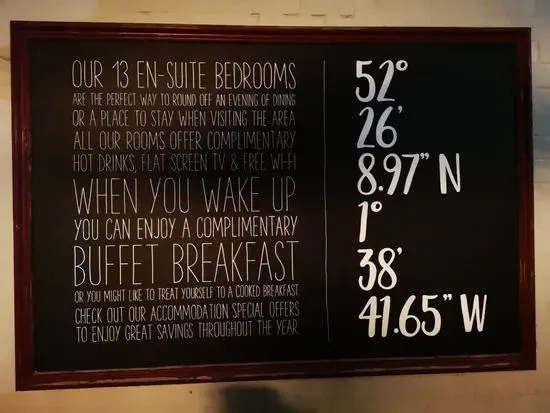 OUR 13 EN-SUITE BEDROOMS
ARE THE PERFECT WAY TO ROUND OFF AN EVENING OF DINING
OR A PLACE TO STAY WHEN VISITING THE AREA
ALL OUR ROOMS OFFER COMPLIMENTARY
HOT DRINKS, FLAT SCREEN TV & FREE WI-FI
WHEN YOU WAKE UP
YOU CAN ENJOY A COMPLIMENTARY
BUFFET BREAKFAST
OR YOU MIGHT LIKE TO TREAT YOURSELF TO A COOKED BREAKFAST
CHECK OUT OUR ACCOMMODATION SPECIAL OFFERS
TO ENJOY GREAT SAVINGS THROUGHOUT THE YEAR
52°
26'
8.97" N
1°
38'
41.65" W